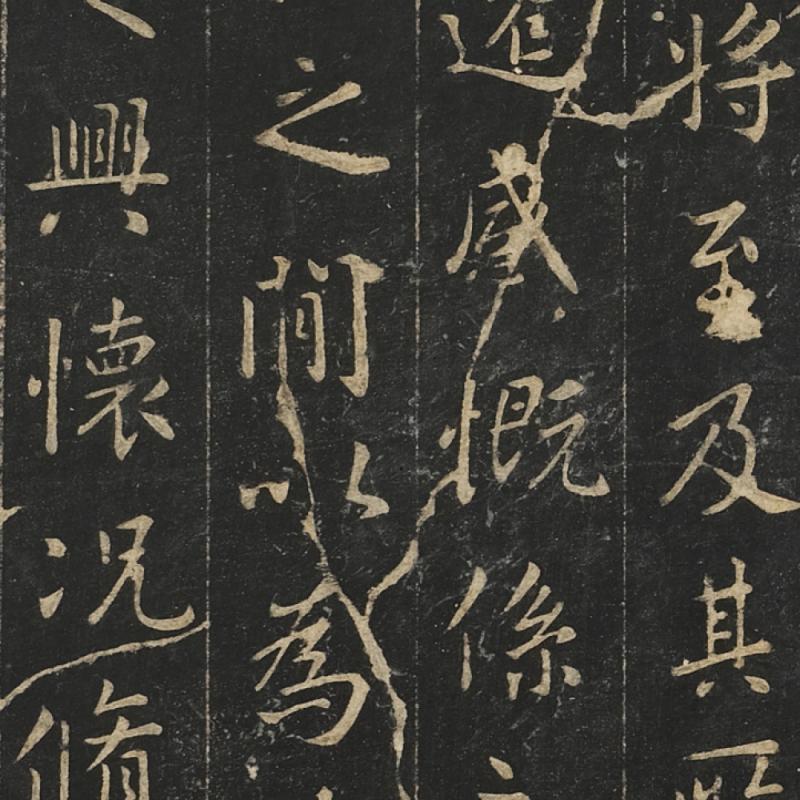 將至及其所
遷感慨係之
之間以為
興懷況脩